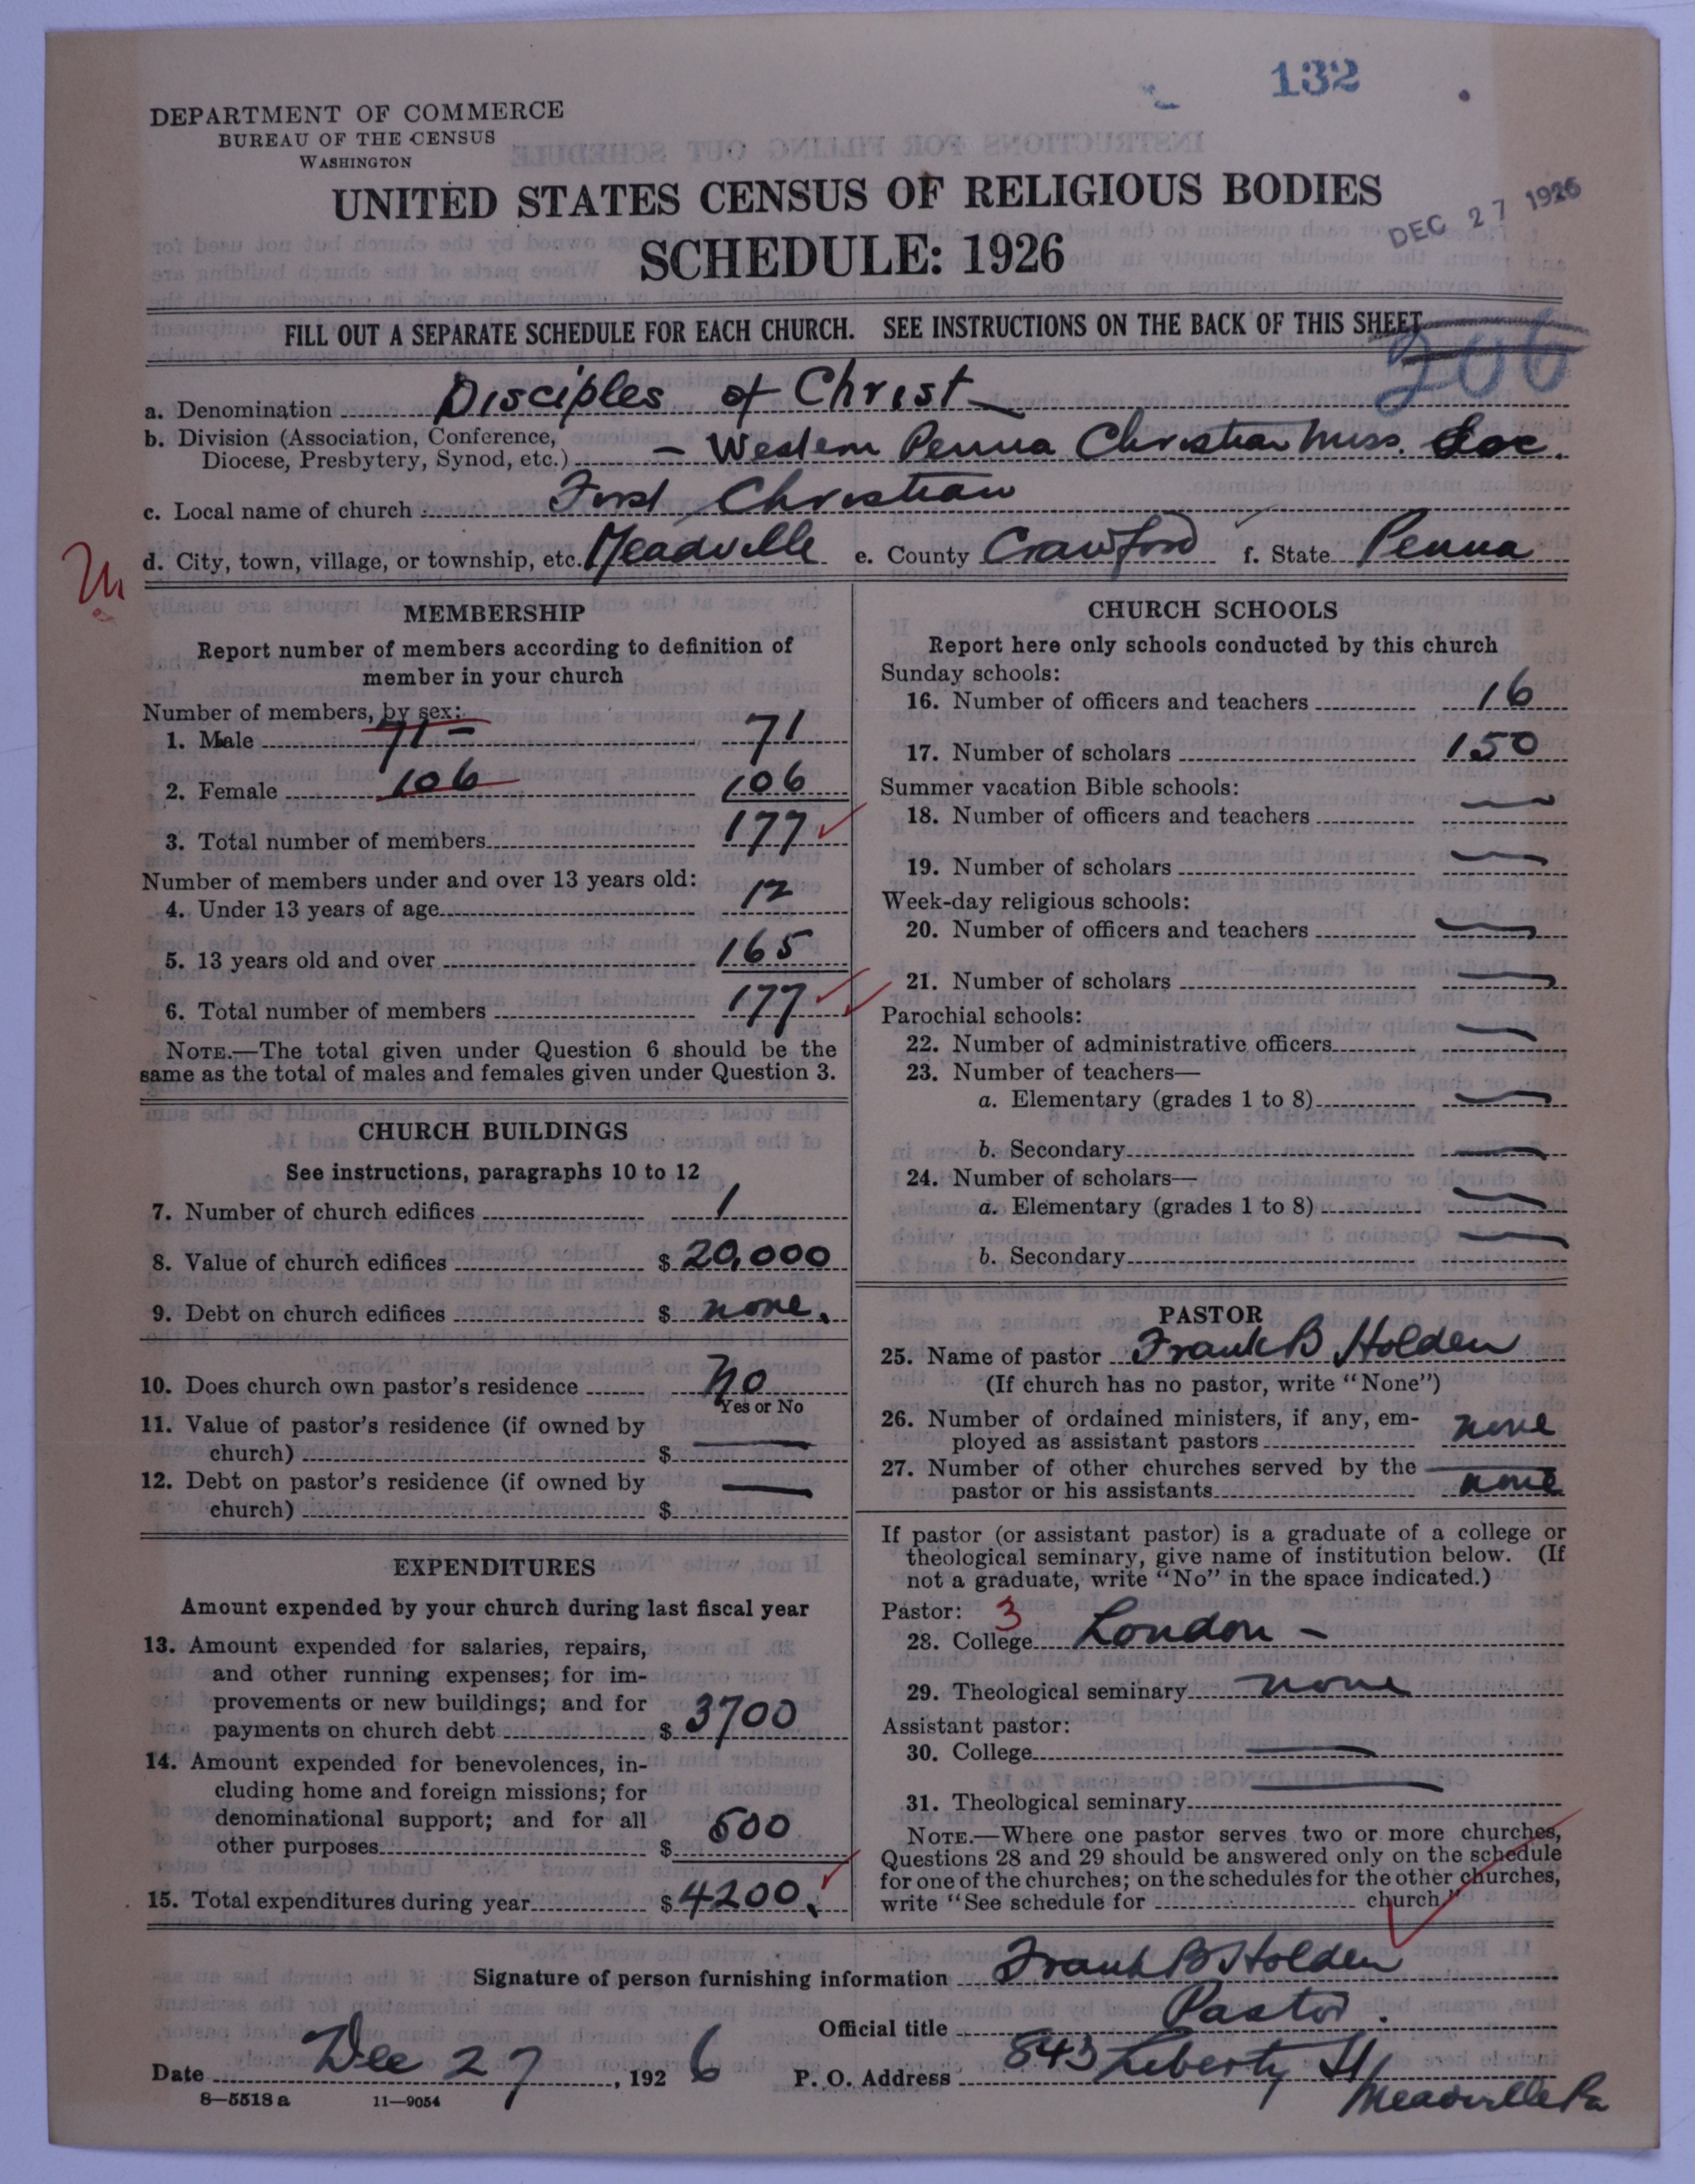 132
DEPARTMENT OF COMMERCE
BUREAU OF THE CENSUS
WASHINGTON
UNITED STATES CENSUS OF RELIGIOUS BODIES
DEC 27 1926
SCHEDULE: 1926
FILL OUT A SEPARATE SCHEDULE FOR EACH CHURCH. SEE INSTRUCTIONS ON THE BACK OF THIS SHEET
206
a. Denomination Disciples of Christ
b. Division (Association, Conference,
Diocese, Presbytery, Synod, etc.) – Western Penna Christian Miss. Soc.
c. Local name of church First Christian
d. City, town, village, or township, etc. Meadville e. County Crawford f. State Penna
MEMBERSHIP
Report number of members according to definition of
member in your church
Number of members, by sex:
1. Male 71 – 71
2. Female 106 106
3. Total number of members 177
Number of members under and over 13 years old:
4. Under 13 years of age 12
5. 13 years old and over 165
6. Total number of members 177
NOTE.—The total given under Question 6 should be the
same as the total of males and females given under Question 3.
CHURCH BUILDINGS
See instructions, paragraphs 10 to 12
7. Number of church edifices 1
8. Value of church edifices $ 20,000
9. Debt on church edifices $ none.
10. Does church own pastor's residence No
Yes or No
11. Value of pastor's residence (if owned by
church) $ —
12. Debt on pastor's residence (if owned by
church) $ —
EXPENDITURES
Amount expended by your church during last fiscal year
13. Amount expended for salaries, repairs,
and other running expenses; for im-
provements or new buildings; and for
payments on church debt $ 3700
14. Amount expended for benevolences, in-
cluding home and foreign missions; for
denominational support; and for all
other purposes $ 500
15. Total expenditures during year $ 4200.
CHURCH SCHOOLS
Report here only schools conducted by this church
Sunday schools:
16. Number of officers and teachers 16
17. Number of scholars 150
Summer vacation Bible schools:
18. Number of officers and teachers —
19. Number of scholars —
Week-day religious schools:
20. Number of officers and teachers —
21. Number of scholars —
Parochial schools:
22. Number of administrative officers —
23. Number of teachers—
a. Elementary (grades 1 to 8) —
b. Secondary —
24. Number of scholars—
a. Elementary (grades 1 to 8) —
b. Secondary —
PASTOR
25. Name of pastor Frank B Holden
(If church has no pastor, write "None")
26. Number of ordained ministers, if any, em-
ployed as assistant pastors none
27. Number of other churches served by the
pastor or his assistants none
If pastor (or assistant pastor) is a graduate of a college or
theological seminary, give name of institution below. (If
not a graduate, write "No" in the space indicated.)
Pastor: 3
28. College London –
29. Theological seminary none
Assistant pastor:
30. College —
31. Theological seminary —
NOTE.—Where one pastor serves two or more churches,
Questions 28 and 29 should be answered only on the schedule
for one of the churches; on the schedules for the other churches,
write "See schedule for church."
Signature of person furnishing information Frank B Holden
Official title Pastor.
Date Dec 27, 1926 P. O. Address 843 Liberty St
Meadville Pa
8—5518 a 11—9054